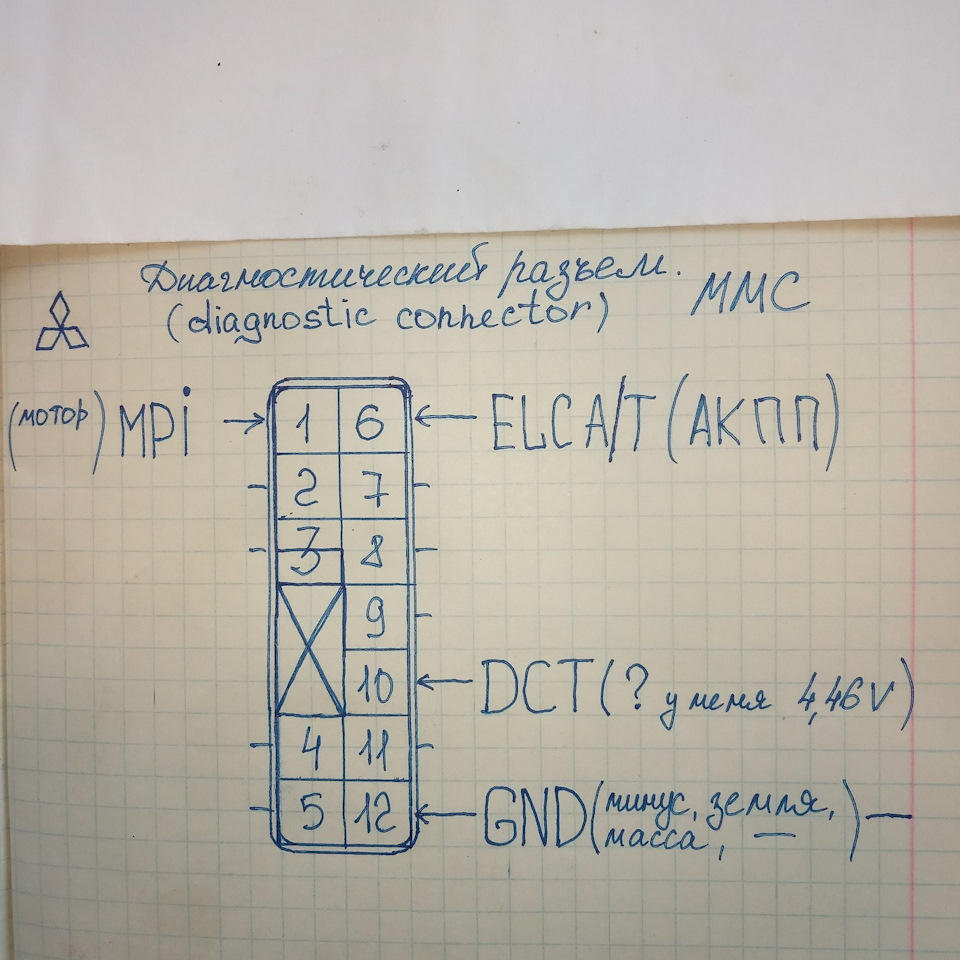 Диагностический разъем.
(diagnostic connector)
ММС
(мотор) MPi
1 6
ELC A/T (АКПП)
2 7
3 8
9
10
DCT (? у меня 4,46V)
4 11
5 12
GND (минус, земля,
масса, —) —